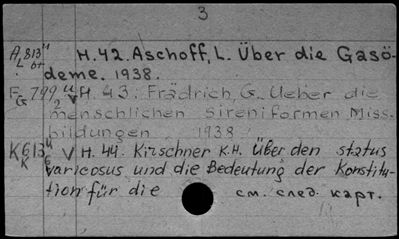 3
A 813 H. 42. Aschoff, L. Über die Gasö-
L bt deme. 1938.
F 799 H. 43. Frädrich, G. Ueber die
G 2 menschlichen Sireniformen Miss-
bildungen 1938
K 613 V H. 44. Kirschner K.H. Über den status
K 6 varicosus und die Bedeutung der Konstitu-
tion für die см. след. карт.